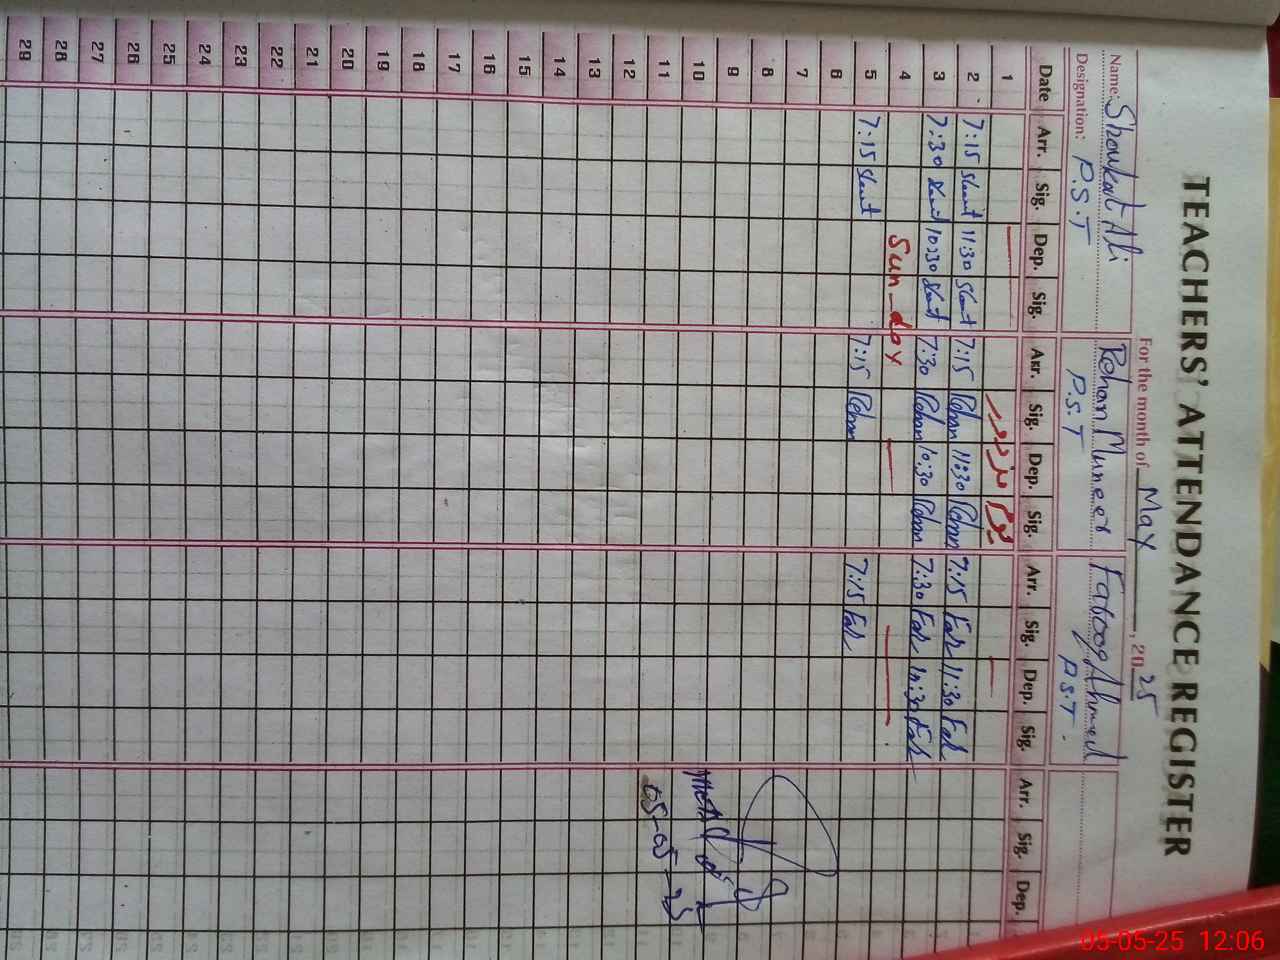 TEACHERS' ATTENDANCE REGISTER
For the month of May, 2025
Name: Shoukat Ali Rehan Muneer Farooq Ahmed
Designation: P.S.T P.S.T P.S.T
Date Arr. Sig. Dep. Sig. Arr. Sig. Dep. Sig. Arr. Sig. Dep. Sig. Arr. Sig. Dep.
1 یوم مزدور
2 7:15 11:30 7:15 Rehan 11:30 Rehan 7:15 Far 11:30 Far
3 7:30 10:30 7:30 Rehan 10:30 Rehan 7:30 Far 10:30 Far
4 Sun-day
5 7:15 7:15 Rehan 7:15 Far
6
7
8
9
10
11 05-05-25
12
13
14
15
16
17
18
19
20
21
22
23
24
25
26
27
28
29
05-05-25 12:06